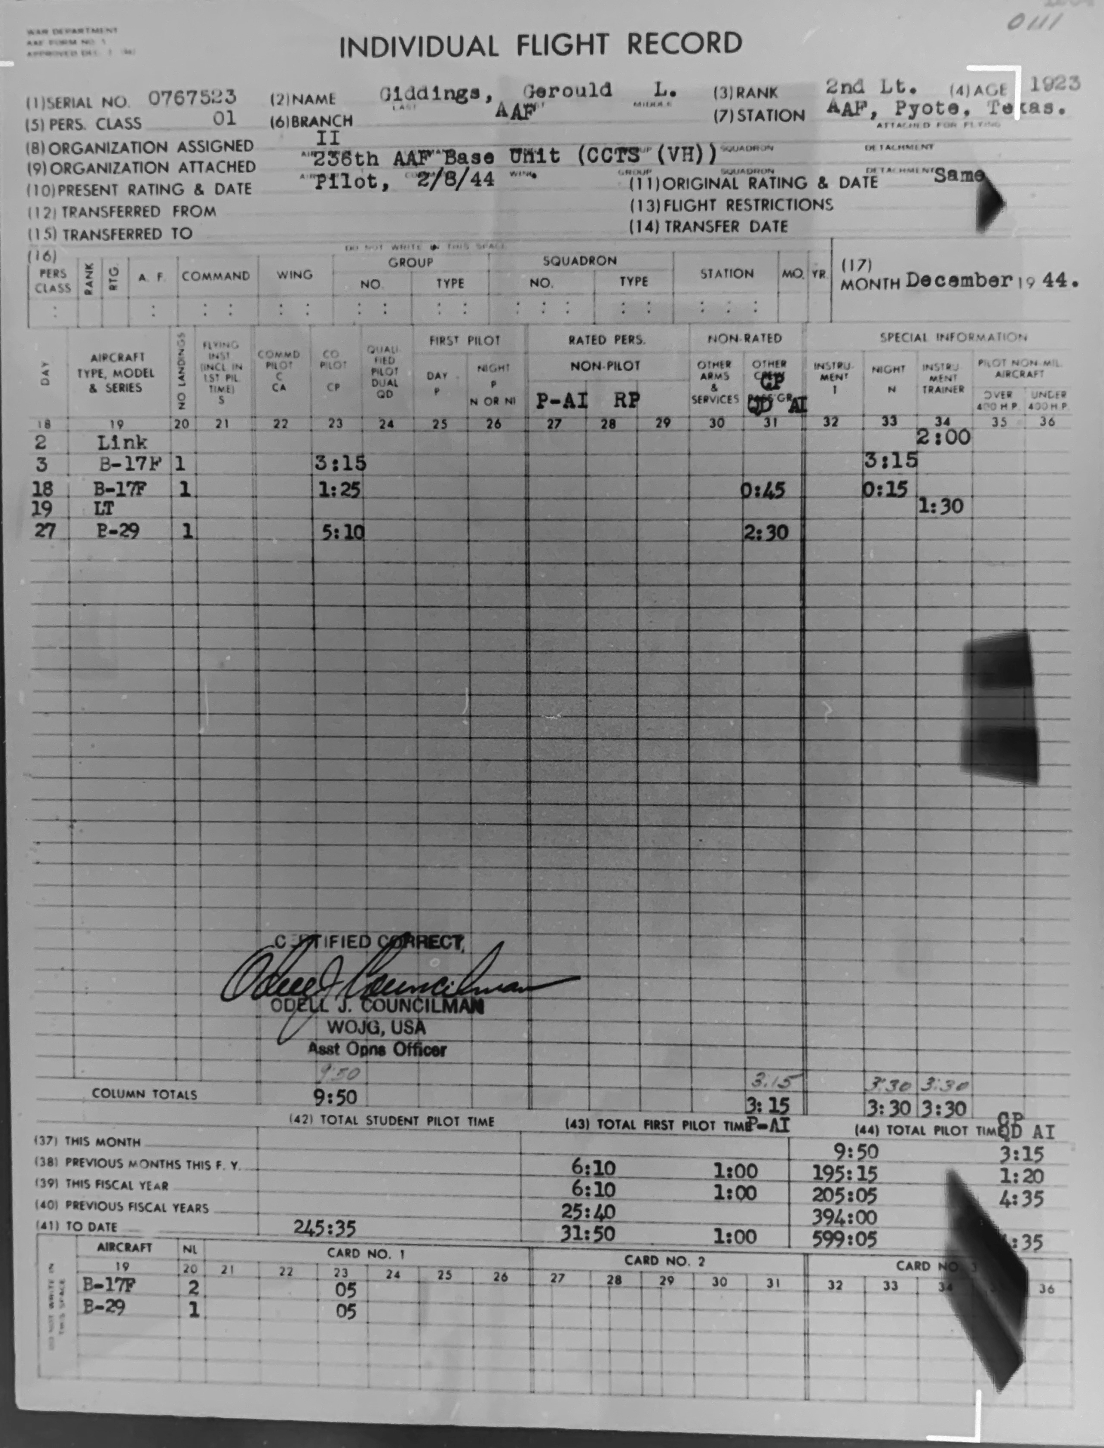 0111
WAR DEPARTMENT
AAF FORM NO. 5
INDIVIDUAL FLIGHT RECORD
(1) SERIAL NO. 0767523 (2) NAME Giddings, Gerould L. (3) RANK 2nd Lt. (4) AGE 1923
LAST MIDDLE
(5) PERS. CLASS 01 (6) BRANCH AAF (7) STATION AAF, Pyote, Texas.
ATTACHED FOR FLYING
(8) ORGANIZATION ASSIGNED II SQUADRON DETACHMENT
(9) ORGANIZATION ATTACHED 236th AAF Base Unit (CCTS (VH)) GROUP SQUADRON DETACHMENT
(10) PRESENT RATING & DATE Pilot, 2/8/44 (11) ORIGINAL RATING & DATE Same
(12) TRANSFERRED FROM (13) FLIGHT RESTRICTIONS
(15) TRANSFERRED TO (14) TRANSFER DATE
DO NOT WRITE IN THIS SPACE
(16) GROUP SQUADRON (17)
PERS CLASS RANK RTG. A. F. COMMAND WING NO. TYPE NO. TYPE STATION MO. YR. MONTH December 19 44.
DAY AIRCRAFT TYPE, MODEL & SERIES NO LANDINGS FLYING INST (INCL IN 1ST PIL TIME) S COMMD PILOT C CA CO PILOT CP QUALI FIED PILOT DUAL QD FIRST PILOT DAY P NIGHT P N OR NI RATED PERS. NON-PILOT P-AI RP NON-RATED OTHER ARMS & SERVICES OTHER CREW CP QD AI SPECIAL INFORMATION INSTRU-MENT I NIGHT N INSTRU-MENT TRAINER PILOT NON-MIL. AIRCRAFT OVER 400 H.P. UNDER 400 H.P.
18 19 20 21 22 23 24 25 26 27 28 29 30 31 32 33 34 35 36
2 Link 2:00
3 B-17F 1 3:15 3:15
18 B-17F 1 1:25 0:45 0:15
19 LT 1:30
27 B-29 1 5:10 2:30
CERTIFIED CORRECT,
Odell J Councilman
ODELL J. COUNCILMAN
WOJG, USA
Asst Opns Officer
9:50 3:15 3:30 3:30
COLUMN TOTALS 9:50 3:15 3:30 3:30
(42) TOTAL STUDENT PILOT TIME (43) TOTAL FIRST PILOT TIME P-AI (44) TOTAL PILOT TIME CP QD AI
(37) THIS MONTH 9:50 3:15
(38) PREVIOUS MONTHS THIS F. Y. 6:10 1:00 195:15 1:20
(39) THIS FISCAL YEAR 6:10 1:00 205:05 4:35
(40) PREVIOUS FISCAL YEARS 25:40 394:00
(41) TO DATE 245:35 31:50 1:00 599:05 :35
DO NOT WRITE IN THIS SPACE
AIRCRAFT NL CARD NO. 1 CARD NO. 2 CARD NO. 3
19 20 21 22 23 24 25 26 27 28 29 30 31 32 33 34 36
B-17F 2 05
B-29 1 05